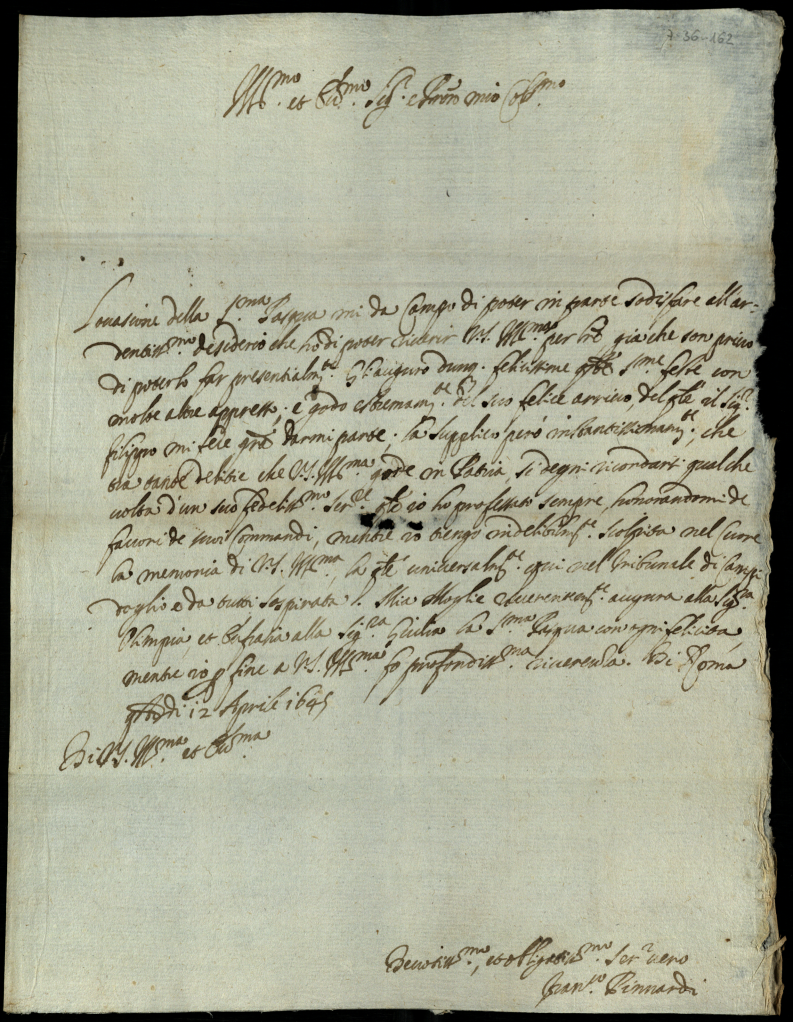 7-36-162
Ill.mo et Ecc.mo Sig.r e Pron mio Coll.mo
L'occasione della S.ma Pasqua mi da Campo di poter in parte sodisfare all'ar-
dentiss.mo desiderio che hò di poter riverir V.S. Ill.ma per lrê, già che son privo
di poterlo far presentialm.te Gli auguro dunq. felicissime qste s.me feste con
molte altre appresso, e godo estremam.te del suo felice arrivo, del qle il Sig.r
filippo mi fece grã darmi parte. la supplico però instantissimam.te, che
tra tante delitie che V.S. Ill.ma gode in Patria, si degni ricordarsi qualche
volta d'un suo fedeliss.mo Ser.re qle io ho professato sempre, honorandomi de
suoi Commandi, mentre io tengo indelebilm.te scolpita nel Cuore
la memoria di V.S. Ill.ma, la qle universalm.te qui nel Tribunale di Campi
doglio e da tutti sospirata. Mia Moglie riverentem.te augura alla Sig.ra
Olimpia, et Eufralia alla Sig.ra Giulia la S.ma Pasqua con ogni felicità,
mentre io p fine a V.S. Ill.ma fo profondiss.ma riverenza. Di Roma
qsto di 12 Aprile 1645
Di V.S. Ill.ma et Ecc.ma
Devotiss.mo, et obligatiss.mo Ser.r vero
Fran.co Pinnardi